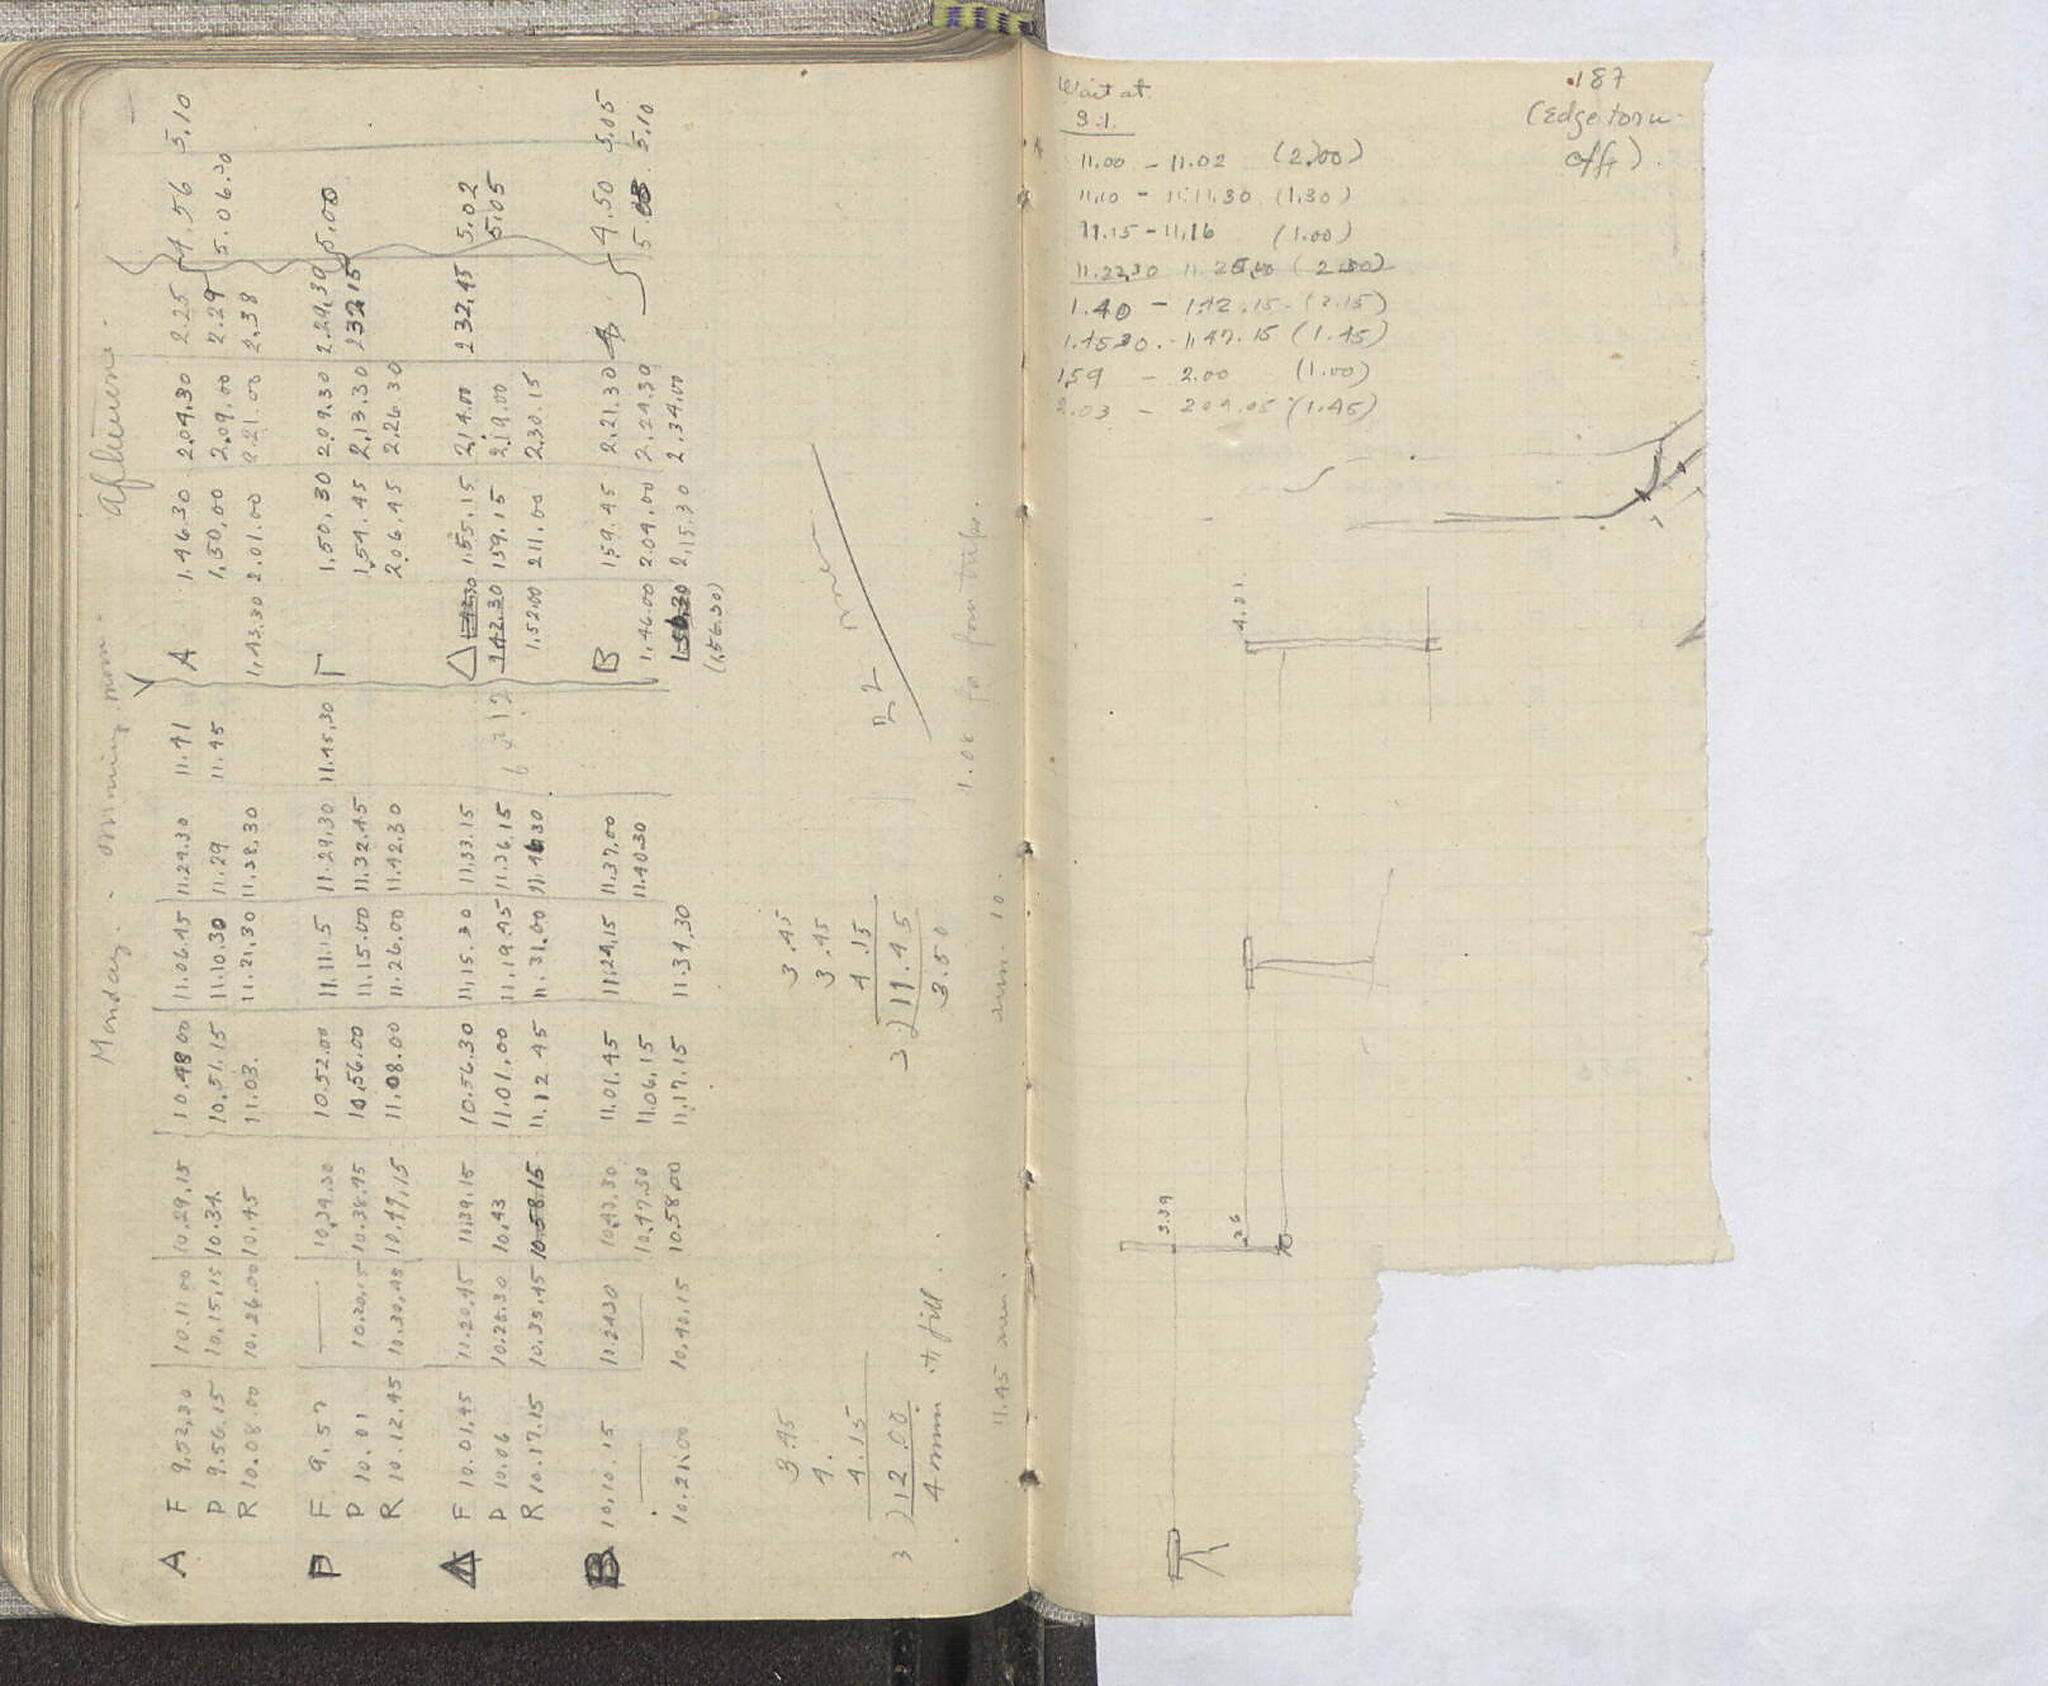 Monday. - morning mom. Afternoon.
A F 9.52.30 10.11 00 10.29.15 10.48 00 11.06.45 11.24.30 11.41 A 1.46.30 2.04.30 2.25 4.56 5.10
P 9.56.15 10.15.15 10.34. 10.51.15 11.10.30 11.29 11.45 1.50.00 2.09.00 2.29 5.06.30
R 10.08.00 10.26.00 10.45 11.03. 11.21.30 11.38.30 1.43.30 2.01.00 2.21.00 2.38
Γ F. 9.57 — 10.34.30 10.52.00 11.11.15 11.29.30 11.45.30 Γ 1.50.30 2.09.30 2.29.30 5.00
P 10.01 10.20.15 10.38.45 10.56.00 11.15.00 11.32.45 1.54.45 2.13.30 2 32.15
R 10.12.45 10.30.45 10.49.15 11.08.00 11.26.00 11.42.30 2.06.45 2.26.30
Δ F 10.01.45 11.20.45 11.39.15 10.56.30 11.15.30 11.33.15 Δ 1.55.15 2.14.00 2 32.45 5.02
P 10.06 10.25.30 10.43 11.01.00 11.19.45 11.36.15 1.42.30 1.59.15 2.19.00 5.05
R 10.17.15 10.35.45 10.58.15 11.12 45 11.31.00 11.46.30 1.52.00 2 11.00 2.30.15
B 10.10.15 11.24.30 10.43.30 11.01.45 11.24.15 11.37.00 B 1.59.45 2.21.30 4.50 5.05
— — 10.47.30 11.06.15 11.40.30 1.46.00 2.04.00 2.24.30 5.10
10.21.00 10.40.15 10.58.00 11.17.15 11.34.30 1.56.30 2.15.30 2.34.00
(1.56.30)
3.45 3.45
4. 3.45
4.15 4.15
3 ) 12.00 3 ) 11.45
4 min to fill. 3.50
22 men
1.08 to four trips.
11.45 men. men. 10.
.187
(edge torn
off).
Wait at
S.1.
11.00 - 11.02 (2.00)
11.10 - 11.11.30 (1.30)
11.15 - 11.16 (1.00)
11.22.30
1.40 - 1.42.15 - (2.15)
1.45 30. - 1.47.15 (1.45)
1.59 - 2.00 (1.00)
2.03 - 2 04.05 (1.45)
4.01
3.39
.26